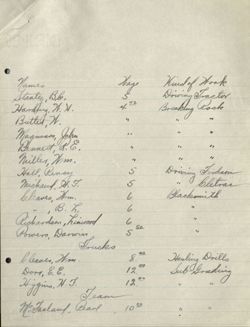 Names Wage Kind of Work
Steitz, B.C. 5 Driving Tractor
Harding, W. W. 4.50 Breaking Rock
Butler, W. " " "
Magnuson, John " " "
Bennett, S. E. " " "
Miller, Wm. " " "
Hall, Benny 5 Driving Fordson
Michaud, W. T. 5 " Cletrac
Cleaves, Wm. 6 Blacksmith
" , B. L. 6 "
Richardson, Linwood 6 "
Powers, Darwin 5.50 "
Trucks
Cleaves, Wm. 8.00 Hauling Drills
Dorr, E. E. 12.00 Sub Grading
Higgins, W. T. 12.00 " "
Team
McFarland, Pearl 10.50 " "